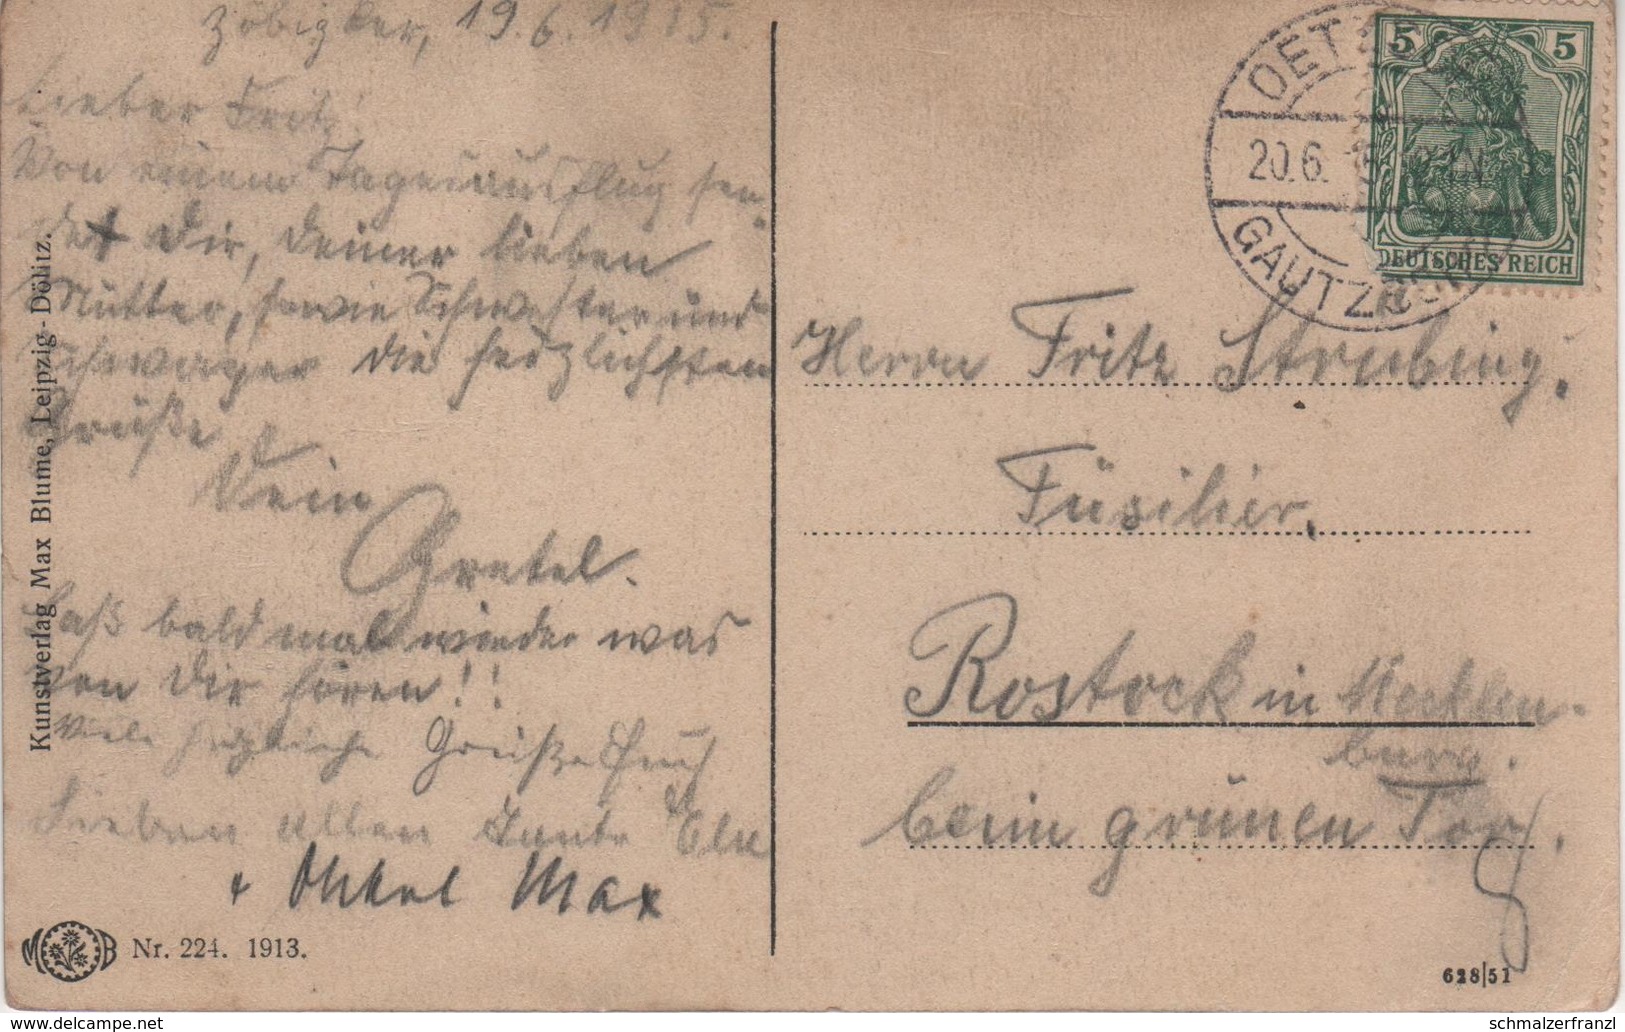 Zöbigker, 19.6.1915.
Lieber Fritz!
Von einem Tagesausflug sen-
det Dir, Deiner lieben
Mutter, sowie Schwester und
Schwager die herzlichsten
Grüße
Dein
Gretel.
Laß bald mal wieder was
von Dir hören!!
Viele herzliche Grüße Euch
Lieben allen Tante
+ Onkel Max
Kunstverlag Max Blume, Leipzig-Dölitz.
M B Nr. 224. 1913.
OETZSCH
20.6.
GAUTZSCH
5 5
DEUTSCHES REICH
Herrn Fritz Strubing.
Füsilier.
Rostock in Mecklen-
burg.
beim grünen Tor.
628/51
www.delcampe.net
schmalzerfranzl